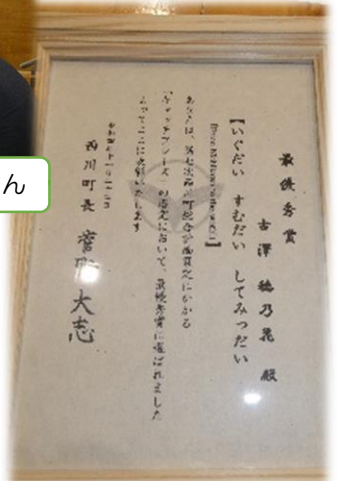 最優秀賞
古澤 穂乃花 殿
【いぐだい すむだい してみっだい
あなたは、第七次西川町総合計画策定にかかる
「キャッチフレーズ」の選定において、最優秀賞に選ばれました
よってここに表彰いたします
西川町長 菅野大志
ん